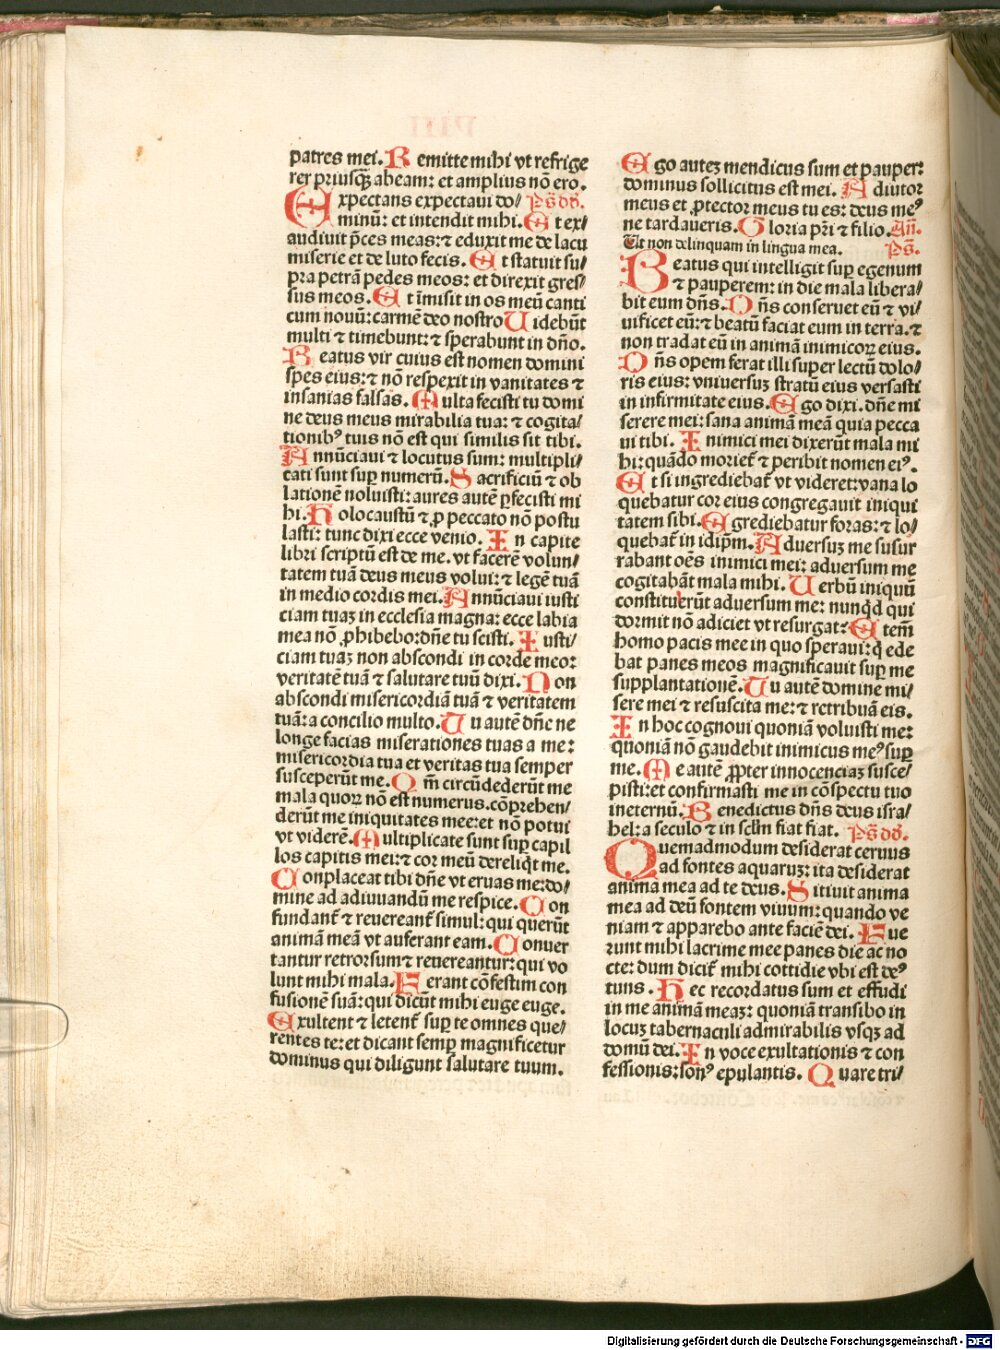 patres mei. Remitte mihi vt refrige
rer priusqȝ abeam: et amplius nō ero.
Expectans expectaui do/ Ps̄ dd̄.
minū: et intendit mihi. Et ex/
audiuit p̄ces meas: ⁊ eduxit me de lacu
miserie et de luto fecis. Et statuit su/
pra petrā pedes meos: et direxit gres/
sus meos. Et īmisit in os meū canti
cum nouū: carmē deo nostro Uidebūt
multi ⁊ timebunt: ⁊ sperabunt in dn̄o.
Beatus vir cuius est nomen domini
spes eius: ⁊ nō respexit in vanitates ⁊
insanias falsas. Multa fecisti tu domi
ne deus meus mirabilia tua: ⁊ cogita/
tionibꝰ tuis nō est qui similis sit tibi.
Annūciaui ⁊ locutus sum: multipli/
cati sunt suꝑ numerū. Sacrificiū ⁊ ob
lationē noluisti: aures autē ꝑfecisti mi
hi. Holocaustū ⁊ ꝓ peccato nō postu
lasti: tunc dixi ecce venio. In capite
libri scriptū est de me. vt facerē volun/
tatem tuā deus meus volui: ⁊ legē tuā
in medio cordis mei. Annūciaui iusti
ciam tuaȝ in ecclesia magna: ecce labia
mea nō ꝓhibebo: dn̄e tu scisti. Iusti/
ciam tuaȝ non abscondi in corde meo:
veritatē tuā ⁊ salutare tuū dixi. Non
abscondi misericordiā tuā ⁊ veritatem
tuā: a concilio multo. Tu autē dn̄e ne
longe facias miserationes tuas a me:
misericordia tua et veritas tua semper
susceperūt me. Qm̄ circūdederūt me
mala quoꝝ nō est numerus. cōprehen/
derūt me iniquitates mee: et nō potui
vt viderē. Multiplicate sunt suꝑ capil
los capitis mei: ⁊ cor meū dereliq̄t me.
Conplaceat tibi dn̄e vt eruas me: do/
mine ad adiuuandū me respice. Con
fundant᷑ ⁊ reuereant᷑ simul: qui querūt
animā meā vt auferant eam. Conuer
tantur retrorsum ⁊ reuereantur: qui vo
lunt mihi mala. Ferant cōfestim con
fusionē suā: qui dicūt mihi euge euge.
Exultent ⁊ letent᷑ suꝑ te omnes que/
rentes te: et dicant semꝑ magnificetur
dominus qui diligunt salutare tuum.
Ego auteȝ mendicus sum et pauper:
dominus sollicitus est mei. Adiutor
meus et ꝓtector meus tu es: deus meꝰ
ne tardaueris. Gloria pr̄i ⁊ filio. Añ.
Ut non delinquam in lingua mea. Ps̄.
Beatus qui intelligit suꝑ egenum
⁊ pauperem: in die mala libera/
bit eum dn̄s. Dn̄s conseruet eū ⁊ vi/
uificet eū: ⁊ beatū faciat eum in terra. ⁊
non tradat eū in animā inimicoꝝ eius.
Dn̄s opem ferat illi super lectū dolo/
ris eius: vniuersuȝ stratū eius versasti
in infirmitate eius. Ego dixi. dn̄e mi
serere mei: sana animā meā quia pecca
ui tibi. Inimici mei dixerūt mala mi
hi: quādo moriet᷑ ⁊ peribit nomen eiꝰ.
Et si ingrediebat᷑ vt videret: vana lo
quebatur cor eius congregauit iniqui
tatem sibi. Egrediebatur foras: ⁊ lo/
quebat᷑ in idip̄m. Aduersuȝ me susur
rabant oēs inimici mei: aduersum me
cogitabāt mala mihi. Uerbū iniquū
constituerūt aduersum me: nunqd̄ qui
dormit nō adiciet vt resurgat: Etem̄
homo pacis mee in quo speraui: q̄ ede
bat panes meos magnificauit suꝑ me
supplantationē. Tu autē domine mi/
serere mei ⁊ resuscita me: ⁊ retribuā eis.
In hoc cognoui quoniā voluisti me:
quoniā nō gaudebit inimicus meꝰ suꝑ
me. Me autē ꝓpter innocenciaȝ susce/
pisti: et confirmasti me in cōspectu tuo
ineternū. Benedictus dn̄s deus isra/
hel: a seculo ⁊ in scl̄m fiat fiat. Ps̄ dd̄.
Quemadmodum desiderat ceruus
ad fontes aquaruȝ: ita desiderat
anima mea ad te deus. Sitiuit anima
mea ad deū fontem viuum: quando ve
niam ⁊ apparebo ante faciē dei. Fue
runt mihi lacrime mee panes die ac no
cte: dum dicit᷑ mihi cottidie vbi est deꝰ
tuus. Hec recordatus sum et effudi
in me animām meaȝ: quoniā transibo in
locuȝ tabernaculi admirabilis vsqȝ ad
domū dei. In voce exultationis ⁊ con
fessionis: sonꝰ epulantis. Quare tri/
Digitalisierung gefördert durch die Deutsche Forschungsgemeinschaft - DFG